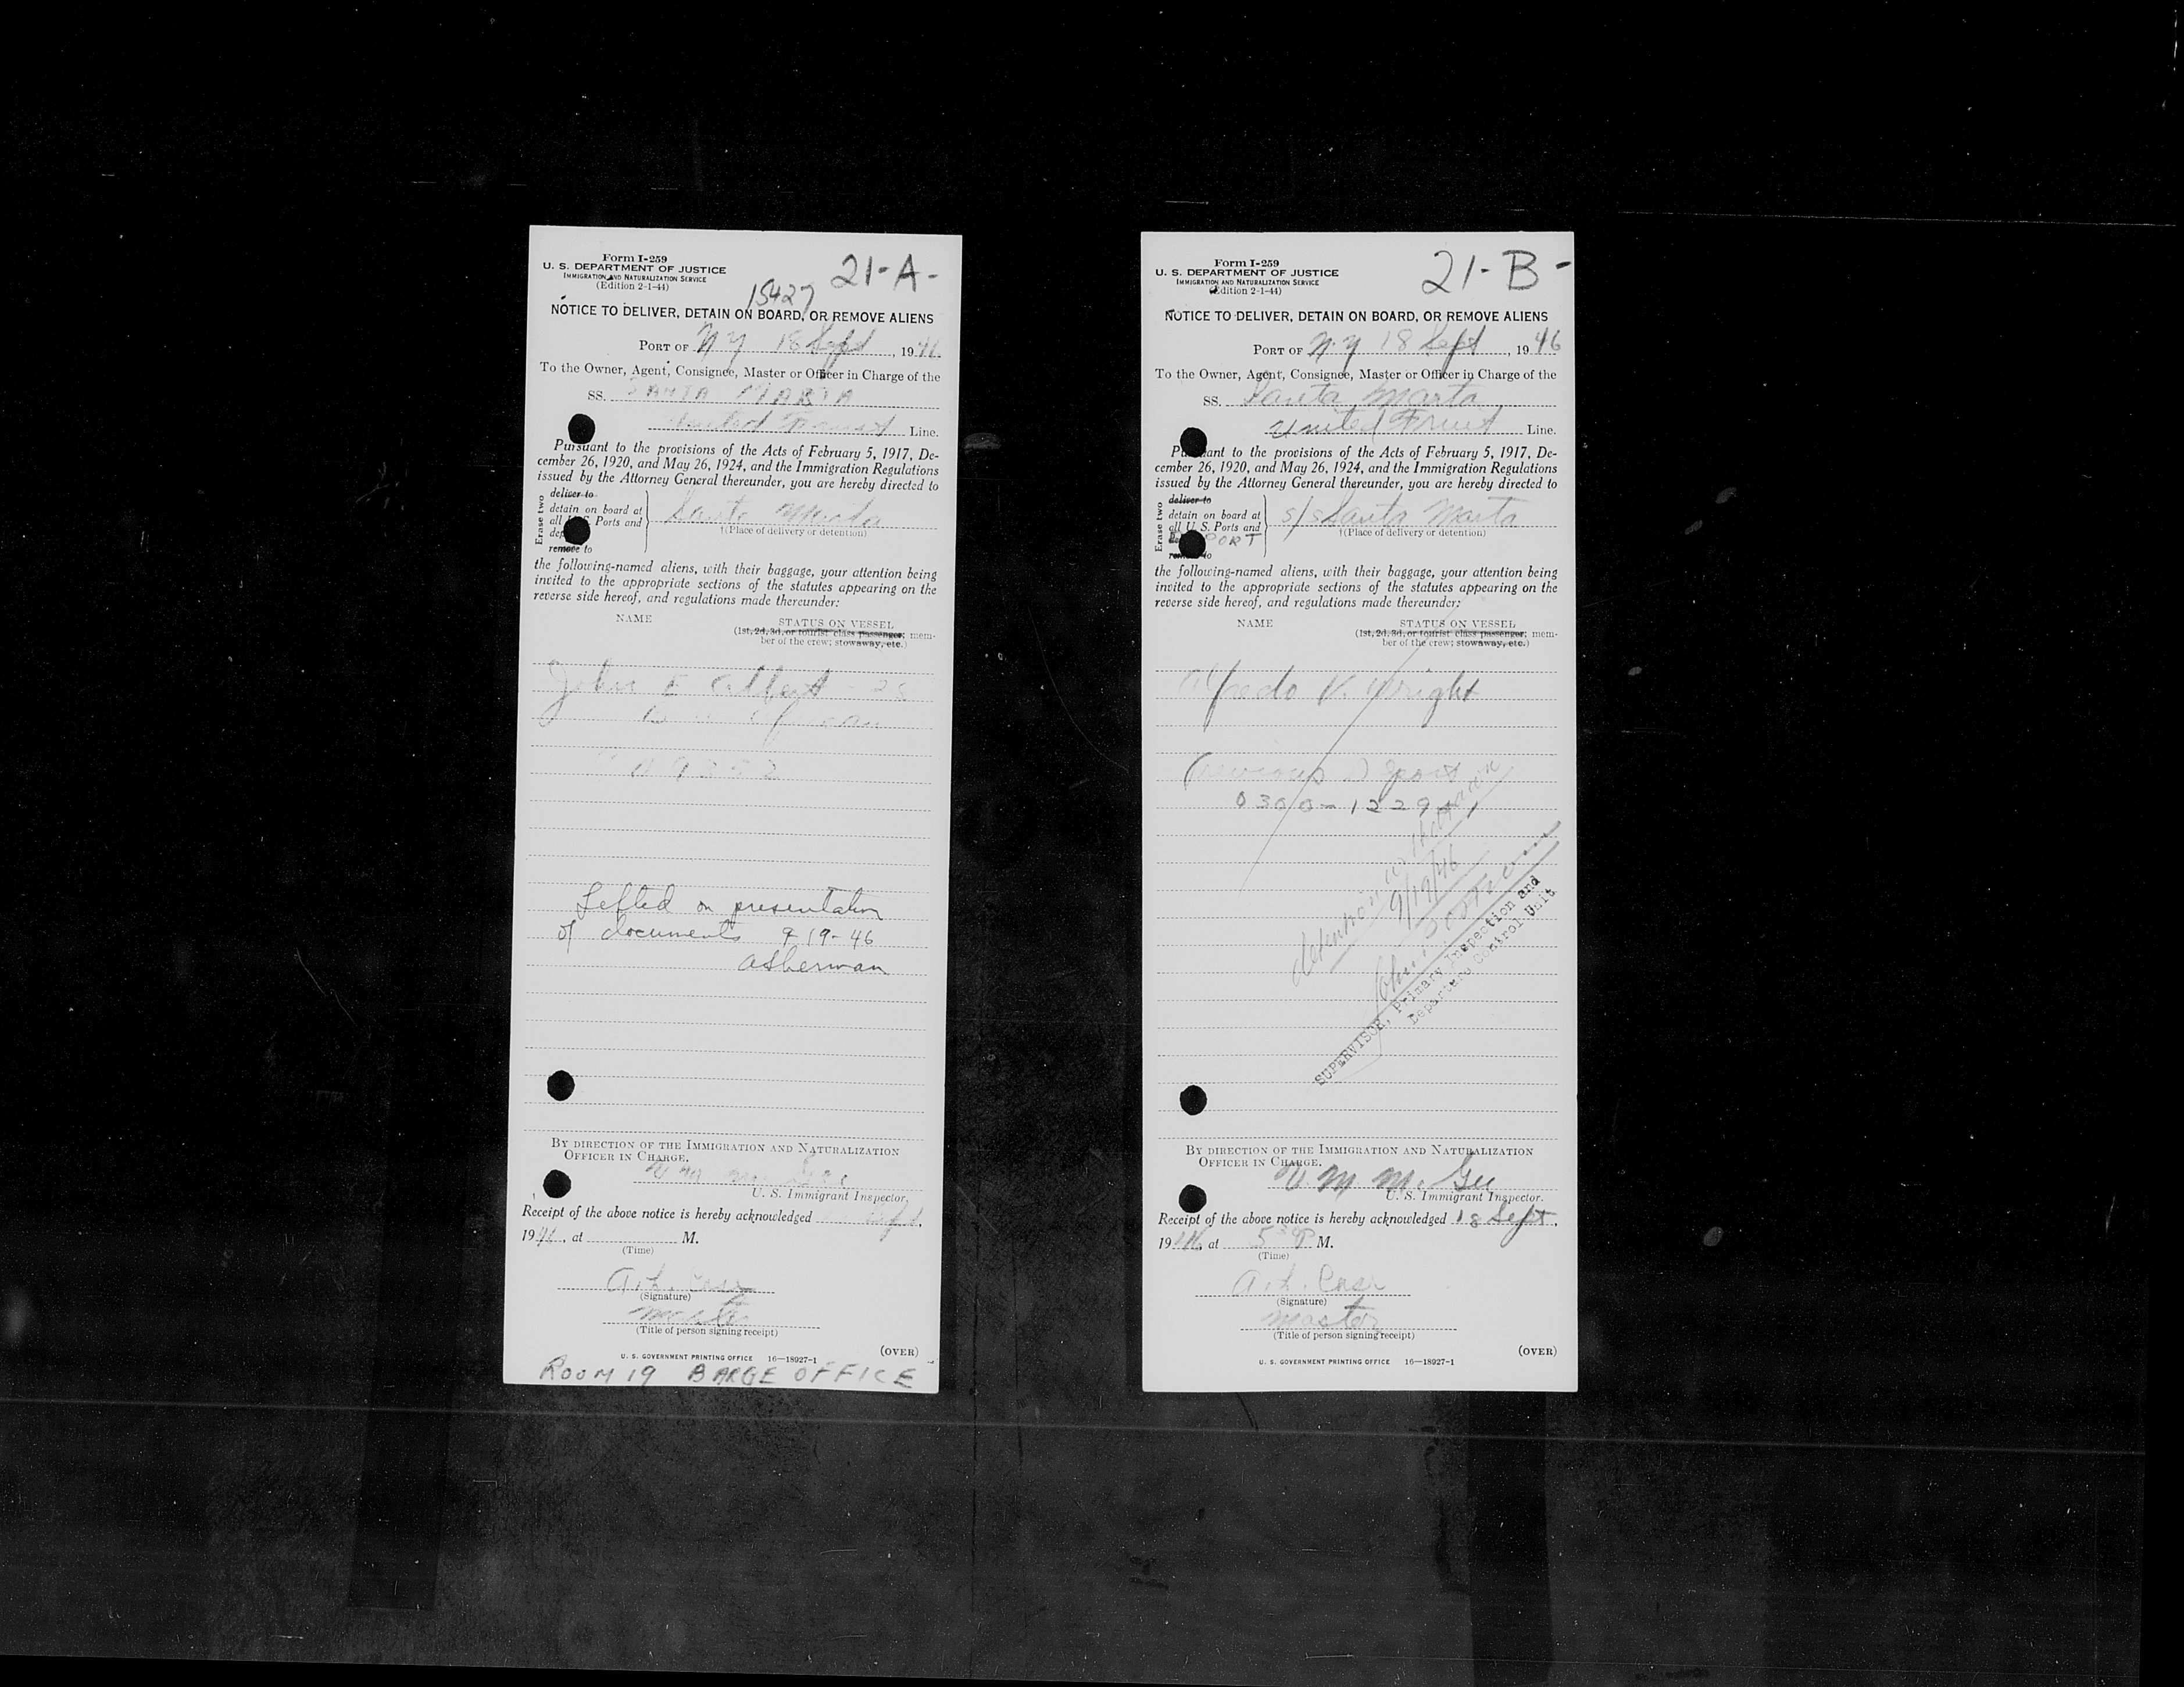 Form I-259
U. S. DEPARTMENT OF JUSTICE
IMMIGRATION AND NATURALIZATION SERVICE
(Edition 2-1-44)
21-A-
15427
NOTICE TO DELIVER, DETAIN ON BOARD, OR REMOVE ALIENS
PORT OF N Y 18 Sept, 1946
To the Owner, Agent, Consignee, Master or Officer in Charge of the
SS. SANTA MARTA
United Line.
Pursuant to the provisions of the Acts of February 5, 1917, De-
cember 26, 1920, and May 26, 1924, and the Immigration Regulations
issued by the Attorney General thereunder, you are hereby directed to
Erase two
deliver to
detain on board at
all U. S. Ports and
remove to
Santa Marta
†(Place of delivery or detention)
the following-named aliens, with their baggage, your attention being
invited to the appropriate sections of the statutes appearing on the
reverse side hereof, and regulations made thereunder:
NAME
STATUS ON VESSEL
(1st, 2d, 3d, or tourist class passenger; mem-
ber of the crew; stowaway, etc.)
John E
Lifted on presentation
of documents 9-19-46
Asherman
BY DIRECTION OF THE IMMIGRATION AND NATURALIZATION
OFFICER IN CHARGE.
U. S. Immigrant Inspector.
Receipt of the above notice is hereby acknowledged Sept,
1946, at M.
(Time)
(Signature)
Master
(Title of person signing receipt)
(OVER)
U. S. GOVERNMENT PRINTING OFFICE 16—18927-1
ROOM 19 BARGE OFFICE
Form I-259
U. S. DEPARTMENT OF JUSTICE
IMMIGRATION AND NATURALIZATION SERVICE
(Edition 2-1-44)
21-B-
NOTICE TO DELIVER, DETAIN ON BOARD, OR REMOVE ALIENS
PORT OF N.Y 18 Sept, 1946
To the Owner, Agent, Consignee, Master or Officer in Charge of the
SS. Santa Marta
United Fruit Line.
Pursuant to the provisions of the Acts of February 5, 1917, De-
cember 26, 1920, and May 26, 1924, and the Immigration Regulations
issued by the Attorney General thereunder, you are hereby directed to
Erase two
deliver to
detain on board at
all U. S. Ports and
remove to
s/s Santa Marta
†(Place of delivery or detention)
the following-named aliens, with their baggage, your attention being
invited to the appropriate sections of the statutes appearing on the
reverse side hereof, and regulations made thereunder:
NAME
STATUS ON VESSEL
(1st, 2d, 3d, or tourist class passenger; mem-
ber of the crew; stowaway, etc.)
Alfredo V. Wright
0300-1229
detention
9/19/46
SUPERVISOR, Primary Inspection and
Departure Control Unit
BY DIRECTION OF THE IMMIGRATION AND NATURALIZATION
OFFICER IN CHARGE.
U. S. Immigrant Inspector.
Receipt of the above notice is hereby acknowledged 18 Sept,
1946, at 5 P M.
(Time)
(Signature)
Master
(Title of person signing receipt)
(OVER)
U. S. GOVERNMENT PRINTING OFFICE 16—18927-1